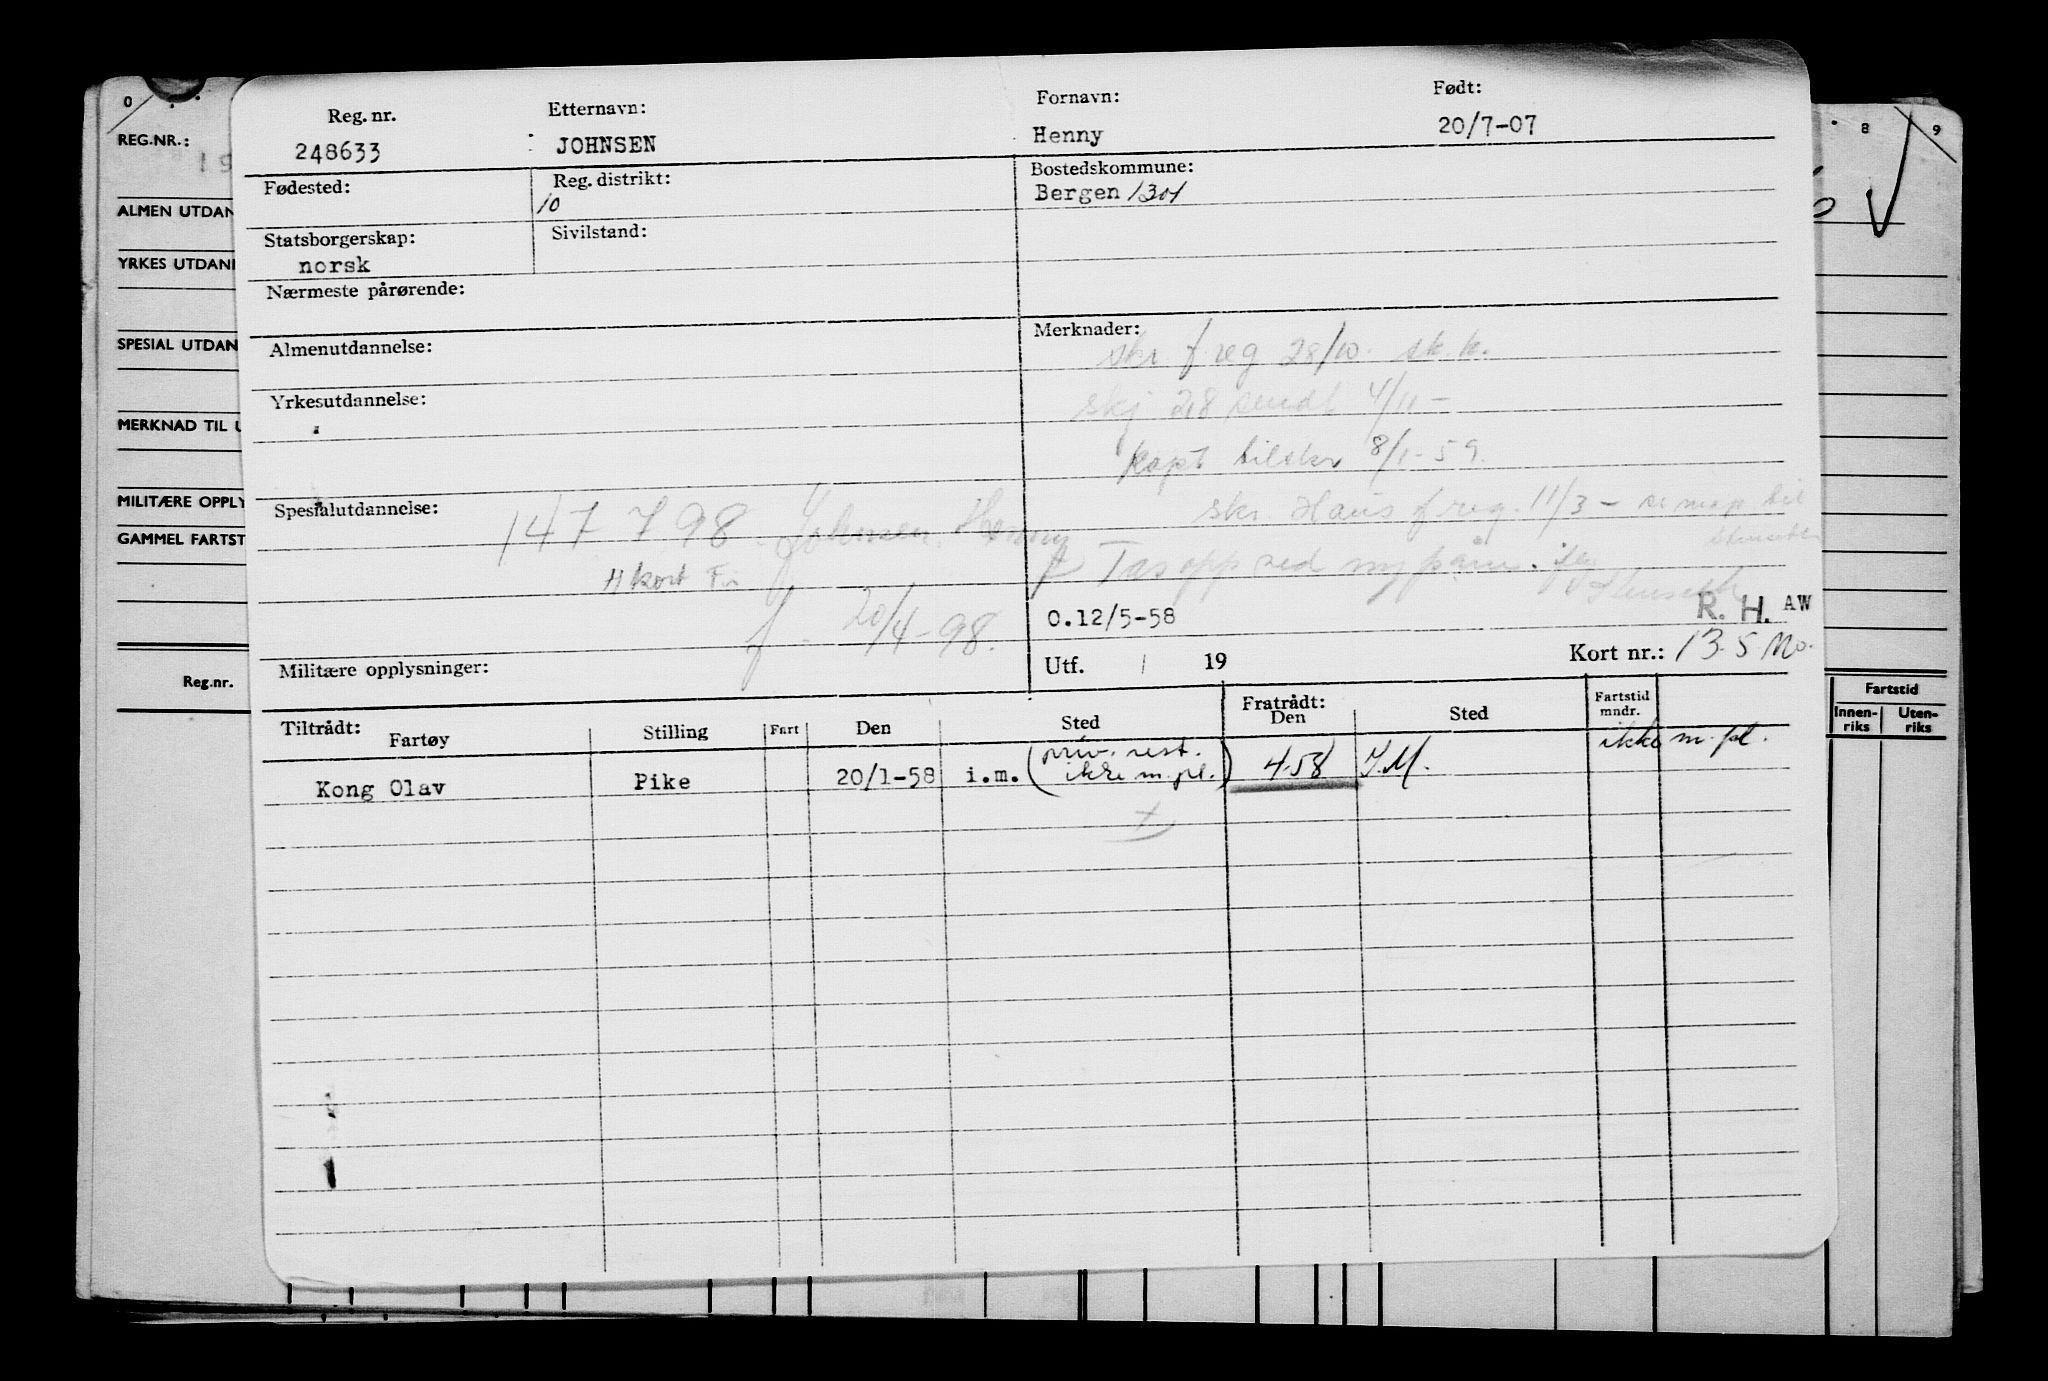 Reg. nr. Etternavn: Fornavn: Født:
248633 JOHNSEN Henny 20/7-07
Fødested: Reg. distrikt: Bostedskommune:
10 Bergen 1301
Statsborgerskap: Sivilstand:
norsk
Nærmeste pårørende:
Almenutdannelse: Merknader:
skr f reg 28/10. sk.k.
Yrkesutdannelse: skj 28 sendt 4/11-
kapt tilskr 8/1-59.
Spesialutdannelse: 147 798 Johnsen Henny skr. Haus f reg. 11/3 - se map til
H kort Fr Tas opp ved
f. 20/4-98. O.12/5-58 R. H. AW
Militære opplysninger: Utf. / 19 Kort nr.: 13 5 Mo.
Tiltrådt: Fratrådt: Fartstid
Fartøy Stilling Fart Den Sted Den Sted mndr.
Kong Olav Pike 20/1-58 i.m. (priv. rest. ikke m.pl.) 4-58 I.M. ikke m.pl.
0 8 9
REG.NR.:
19
ALMEN UTDAN
YRKES UTDAN
SPESIAL UTDAN
MERKNAD TIL U
MILITÆRE OPPLY
GAMMEL FARTST
Reg.nr.
Fartstid
Innen- Uten-
riks riks